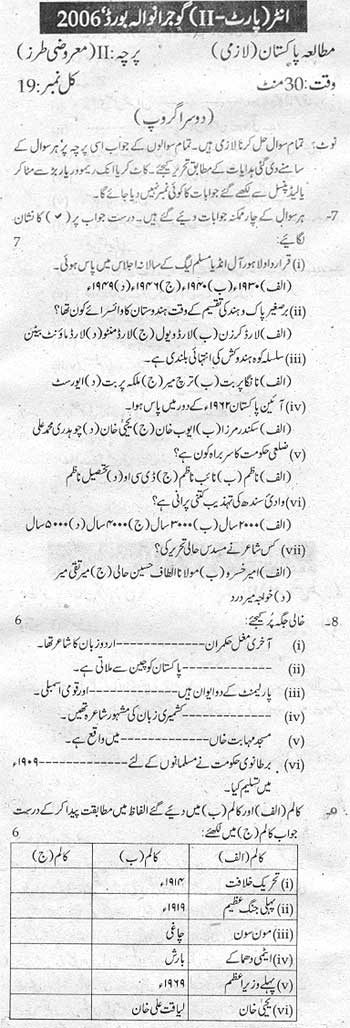 انٹر (پارٹ-II) گوجرانوالہ بورڈ' 2006ء
مطالعہ پاکستان (لازمی) پرچہ: II (معروضی طرز)
وقت: 30 منٹ کل نمبر: 19
(دوسرا گروپ)
نوٹ: تمام سوال حل کرنا لازمی ہیں۔ تمام سوالوں کے جواب اسی پرچہ پر ہر سوال کے
سامنے دی گئی ہدایات کے مطابق تحریر کیجئے۔ کاٹ کر یا انک ریموور یا ربڑ سے مٹا کر
یا لیڈ پنسل سے لکھے گئے جوابات کا کوئی نمبر نہیں دیا جائے گا۔
7- ہر سوال کے چار ممکنہ جوابات دیئے گئے ہیں۔ درست جواب پر (✓) کا نشان
لگائیے: 7
(i) قرارداد لاہور آل انڈیا مسلم لیگ کے سالانہ اجلاس میں پاس ہوئی۔
(الف) ۱۹۳۰ء (ب) ۱۹۴۰ء (ج) ۱۹۴۶ء (د) ۱۹۴۹ء
(ii) برصغیر پاک و ہند کی تقسیم کے وقت ہندوستان کا وائسرائے کون تھا؟
(الف) لارڈ کرزن (ب) لارڈ ویول (ج) لارڈ منٹو (د) لارڈ ماؤنٹ بیٹن
(iii) سلسلہ کوہ ہندوکش کی انتہائی بلندی ہے۔
(الف) نانگا پربت (ب) ترچ میر (ج) ملکہ پربت (د) ایورسٹ
(iv) آئین پاکستان ۱۹۶۲ء کے دور میں پاس ہوا۔
(الف) سکندر مرزا (ب) ایوب خان (ج) یحییٰ خان (د) چوہدری محمد علی
(v) ضلعی حکومت کا سربراہ کون ہے؟
(الف) ناظم (ب) نائب ناظم (ج) ڈی سی او (د) تحصیل ناظم
(vi) وادئ سندھ کی تہذیب کتنی پرانی ہے؟
(الف) ۲۰۰۰ سال (ب) ۳۰۰۰ سال (ج) ۴۰۰۰ سال (د) ۵۰۰۰ سال
(vii) کس شاعر نے مسدس حالی تحریر کی؟
(الف) امیر خسرو (ب) مولانا الطاف حسین حالی (ج) میر تقی میر
(د) خواجہ میر درد
8- خالی جگہ پُر کیجئے: 6
(i) آخری مغل حکمران ------------ اردو زبان کا شاعر تھا۔
(ii) ------------ پاکستان کو چین سے ملاتی ہے۔
(iii) پارلیمنٹ کے دو ایوان ہیں ------------ اور قومی اسمبلی۔
(iv) ------------ کشمیری زبان کی مشہور شاعرہ تھیں۔
(v) مسجد مہابت خاں ------------ میں واقع ہے۔
(vi) برطانوی حکومت نے مسلمانوں کے لئے ------------ ۱۹۰۹ء
میں تسلیم کیا۔
۹- کالم (الف) اور کالم (ب) میں دیئے گئے الفاظ میں مطابقت پیدا کر کے درست
جواب کالم (ج) میں لکھئے: 6
کالم (الف) کالم (ب) کالم (ج)
(i) تحریک خلافت ۱۹۱۴ء
(ii) پہلی جنگ عظیم ۱۹۱۹ء
(iii) مون سون چاغی
(iv) ایٹمی دھماکے بارش
(v) پہلے وزیراعظم ۱۹۶۹ء
(vi) یحییٰ خان لیاقت علی خان